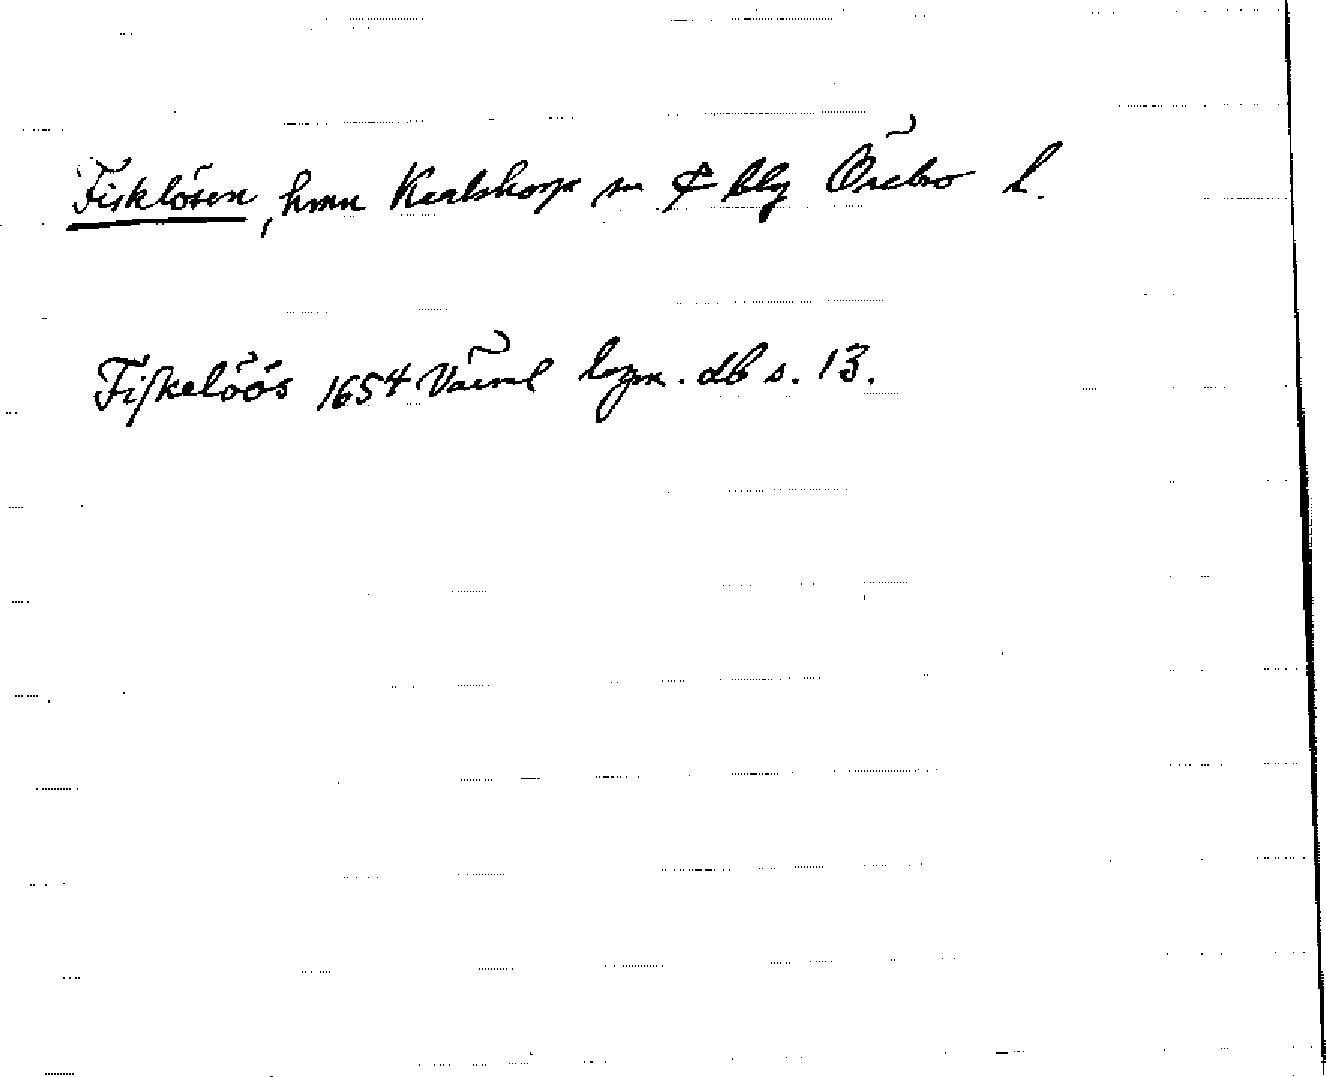 Fisklösen, hmn Karlskoga sn & blg Örebro l.
Fiskelöös 1654 Värml lazm. db s. 13.